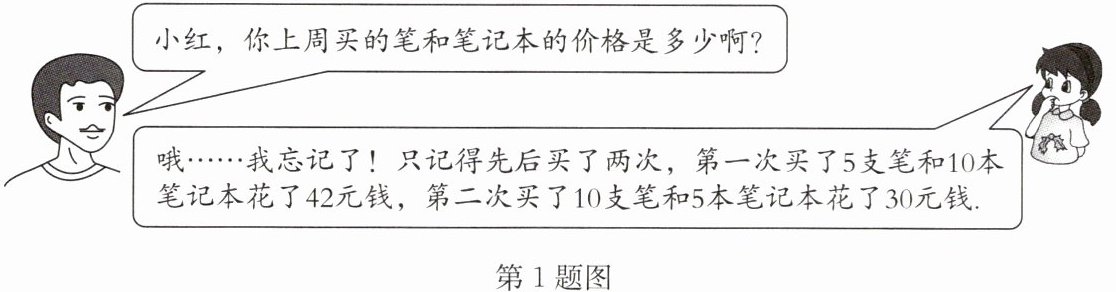 小红，你上周买的笔和笔记本的价格是多少啊？
哦……我忘记了！只记得先后买了两次，第一次买了5支笔和10本
笔记本花了42元钱，第二次买了10支笔和5本笔记本花了30元钱.
第1题图